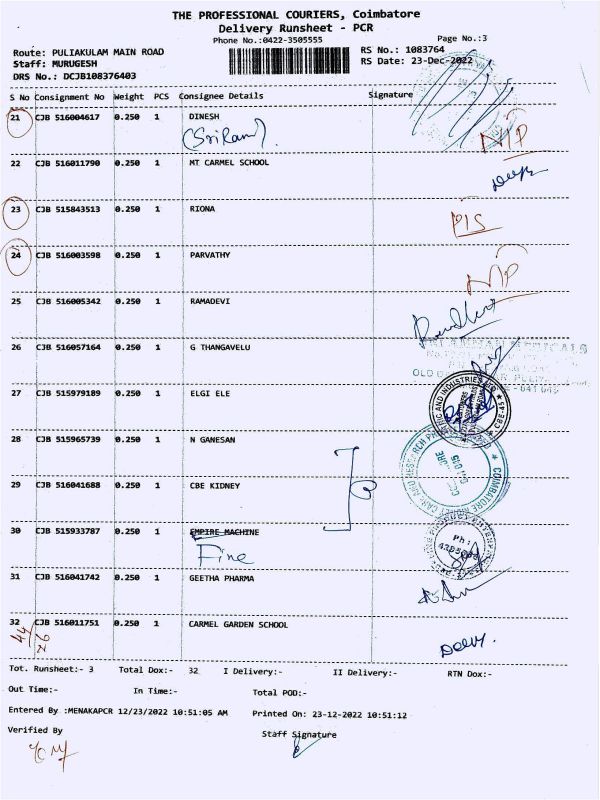 THE PROFESSIONAL COURIERS, Coimbatore
Delivery Runsheet - PCR
Phone No.:0422-3505555
Page No.:3
Route: PULIAKULAM MAIN ROAD
RS No.: 1083764
Staff: MURUGESH
RS Date: 23-Dec-2022
DRS No.: DCJB108376403
S No Consignment No Weight PCS Consignee Details Signature
21 CJB 516004617 0.250 1 DINESH
(SriRam)
NIP
22 CJB 516011790 0.250 1 MT CARMEL SCHOOL
23 CJB 515843513 0.250 1 RIONA
PIS
24 CJB 516003598 0.250 1 PARVATHY
NIP
25 CJB 516005342 0.250 1 RAMADEVI
26 CJB 516057164 0.250 1 G THANGAVELU
27 CJB 515979189 0.250 1 ELGI ELE
28 CJB 515965739 0.250 1 N GANESAN
29 CJB 516041688 0.250 1 CBE KIDNEY
30 CJB 515933787 0.250 1 EMPIRE MACHINE
Fine
31 CJB 516041742 0.250 1 GEETHA PHARMA
32 CJB 516011751 0.250 1 CARMEL GARDEN SCHOOL
Tot. Runsheet:- 3 Total Dox:- 32 I Delivery:- II Delivery:- RTN Dox:-
Out Time:- In Time:- Total POD:-
Entered By :MENAKAPCR 12/23/2022 10:51:05 AM Printed On: 23-12-2022 10:51:12
Verified By Staff Signature